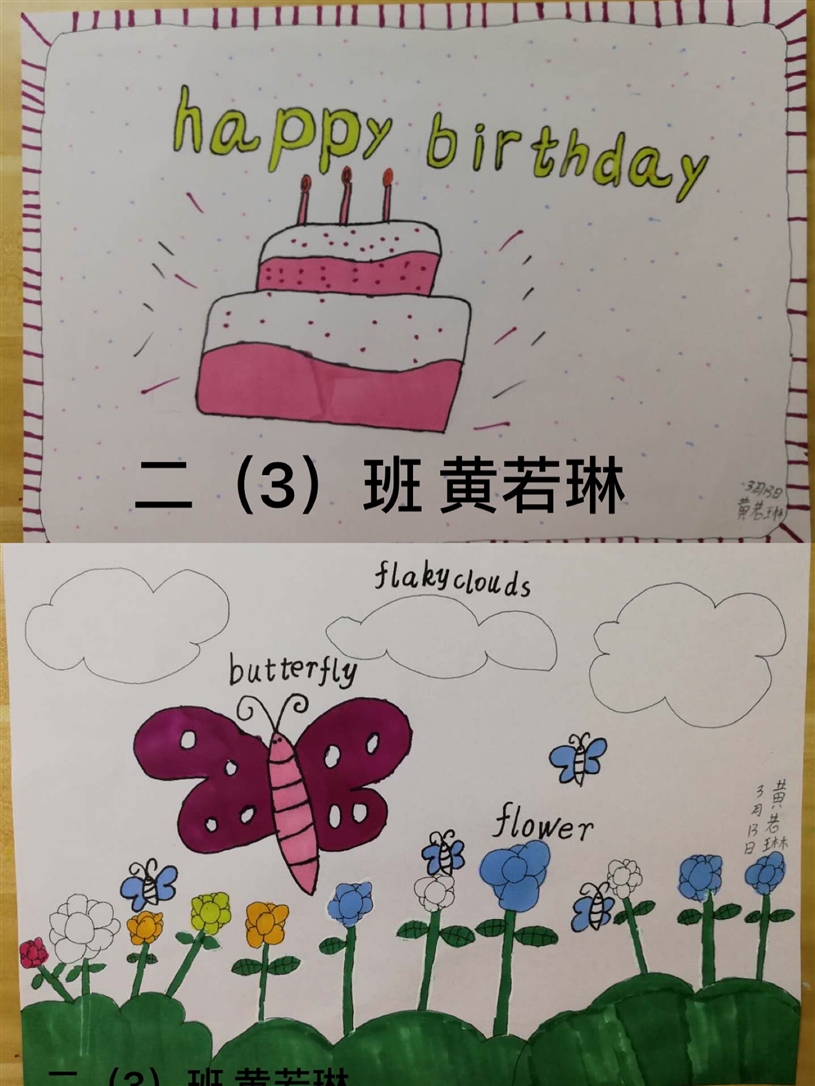 happy birthday
二（3）班 黄若琳
3月13日
黄若琳
flaky clouds
butterfly
flower
黄若琳
3月13日
二（3）班 黄若琳